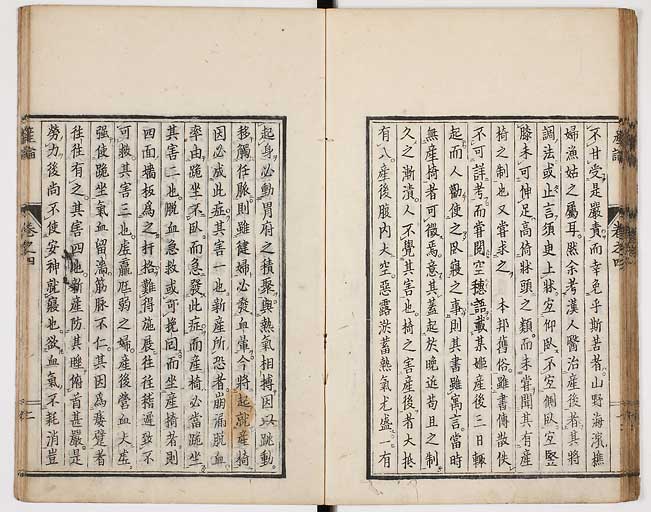 産論 卷之四
不甘受是嚴責而幸免乎斯苦者山野海濱樵
婦漁姑之屬耳然余考漢人醫治産後者其將
調法或止言須更上牀宜仰臥不宜側臥宜竪
膝未可伸足高倚牀頭之類而未嘗聞其有産
椅之制也又嘗求之 本邦舊俗雖書傳散佚
不可詳考而嘗閲空穗語載某姫産後三日輒
起而人勸使之臥寢之事則其書雖寓言當時
無産椅者可徴焉意其蓋起於晩近苟且之制
久之漸漬人不覺其害也椅之害産後者大抵
有八産後腹内大空惡露淤蓄熱氣尤盛一有
起身必動胃府之積聚與熱氣相搏因以跳動
移觸任脈則雖健婦必發血暈今將起就産椅
因必成此症其害一也新産所恐者崩漏脱血
率由跪坐不臥而急發此症而産椅必當跪坐
其害二也脱血急救或可挽回而坐産椅者則
四面墻板爲之扞格難得施展往往稽遲致不
可救其害三也虚羸尪弱之婦産後營血大虚
强使跪坐氣血留滯筋脈不仁其因爲痿躄者
往往有之其害四也新産防其睡俯首甚嚴是
勞力後尚不使安神就寢也欲血氣不耗消豈
産論 卷之四 二